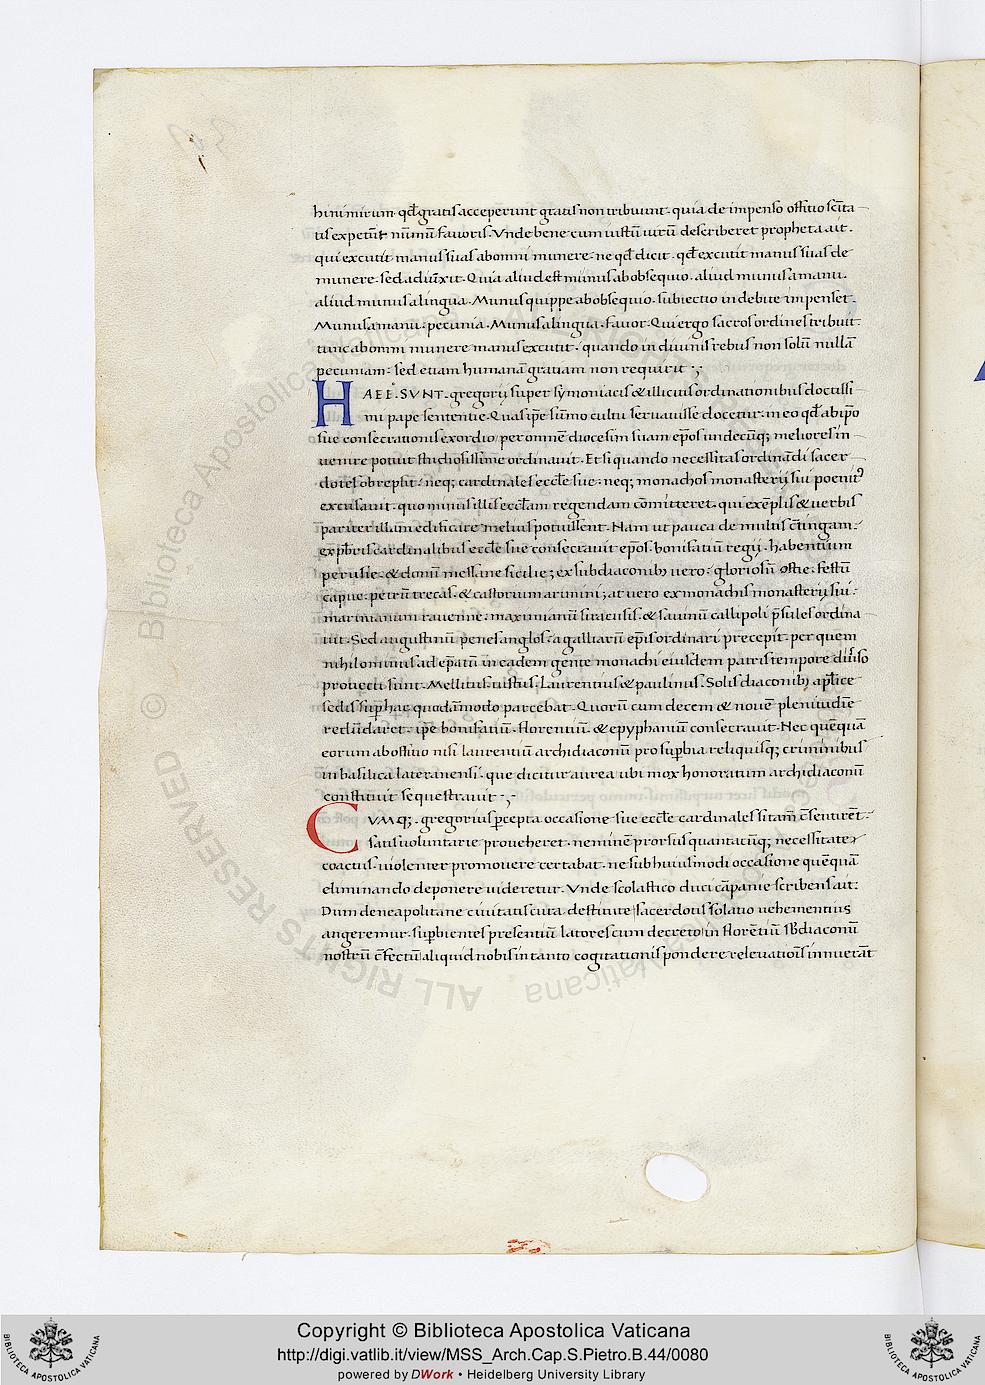 hi nimirum · qđ gratis acceperunt gratis non tribuunt · quia de impenso offitio scīta
tis expetūt nūmū fauoris. Vnde bene cum iustū uirū describeret propheta ait ·
qui excutit manus suas ab omni munere · ne qđ dicit · qđ excutit manus suas de
munere · sed adiūxit · Quia aliud est munus ab obsequio · aliud munus a manu ·
aliud munus a lingua · Munus quippe ab obsequio · subiectio indebite impensa ·
Munus a manu · pecunia · Munus a lingua · fauor · Qui ergo sacros ordines tribuit ·
tunc ab omni munere manus excutit · quando in diuinis rebus non solū nullā
pecuniam: sed etiam humanā gratiam non requirit ·,·
HAEE · SVNT · gregorij super symoniacis & illicitis ordinationibus doctissi
mi pape sententie · Quas ip̄e sūmo cultu seruauisse docetur · in eo qđ ab ip̄o
sue consecrationis exordio per omnē diocesim suam ep̄os undecūq; meliores in
uenire potuit studiosissime ordinauit · Et si quando necessitas ordinādi sacer
dotes obrepsit: neq; cardinales eccl̄e sue: neq; monachos monasterij sui poenit⁹
excusauit · quo minus illis eccl̄am regendam cōmitteret · qui exēplis & uerbis
pariter illam edificare melius potuissent · Nam ut pauca de multis c̄tingam:
ex pb̄ris cardinalibus eccl̄e sue consecrauit ep̄os · bonifatiū regij · habentium
perusie · & donū messane sicilie; ex subdiaconibȝ uero: gloriosū ostie · festū
capue · petrū trecas · & castorium arimini; at uero ex monachis monasterij sui:
marinianum rauenne · maximianū siracusis · & sauinū callipoli p̄sules ordina
uit · Sed augustinū penes anglos · a galliarū ep̄is ordinari precepit · per quem
nihilominus ad ep̄atū in eadem gente monachi eiusdem patris tempore diuiso
prouecti sunt · Mellitus · iustus · Laurentius & paulinus · Solis diaconibȝ ap̄lice
sedis sup̄ hac quodāmodo parcebat · Quorū cum decem & nouē plenitudīe
redūdaret · ip̄e bonifatiū · florentiū · & epyphaniū consecrauit · Nec quēquā
eorum ab offitio nisi laurentiū archidiaconū pro sup̄bia reliquisq; criminibus
in basilica lateranensi · que dicitur aurea ubi mox honoratum archidiaconū
constituit sequestrauit ·,·
CVMQ; · gregorius p̄cepta occasione sue eccl̄e cardinales si tam̄ c̄sentirēt ·
satis uoluntarie proueheret · neminē prorsus quantacūq; necessitate
coactus · uiolenter promouere certabat · ne sub huiusmodi occasione quēquā
eliminando deponere uideretur · Vnde scolastico duci cāpanie scribens ait:
Dum de neapolitane ciuitatis cura destitute sacerdotis solatio uehementius
angeremur · sup̄bientes presentiū latores cum decreto in florētiū sb̄diaconū
nostrū c̄fectū aliquid nobis in tanto cogitationis pondere releuatiōis inuenāt
Copyright © Biblioteca Apostolica Vaticana
http://digi.vatlib.it/view/MSS_Arch.Cap.S.Pietro.B.44/0080
powered by DWork • Heidelberg University Library
© Biblioteca Apostolica Vaticana
ALL RIGHTS RESERVED